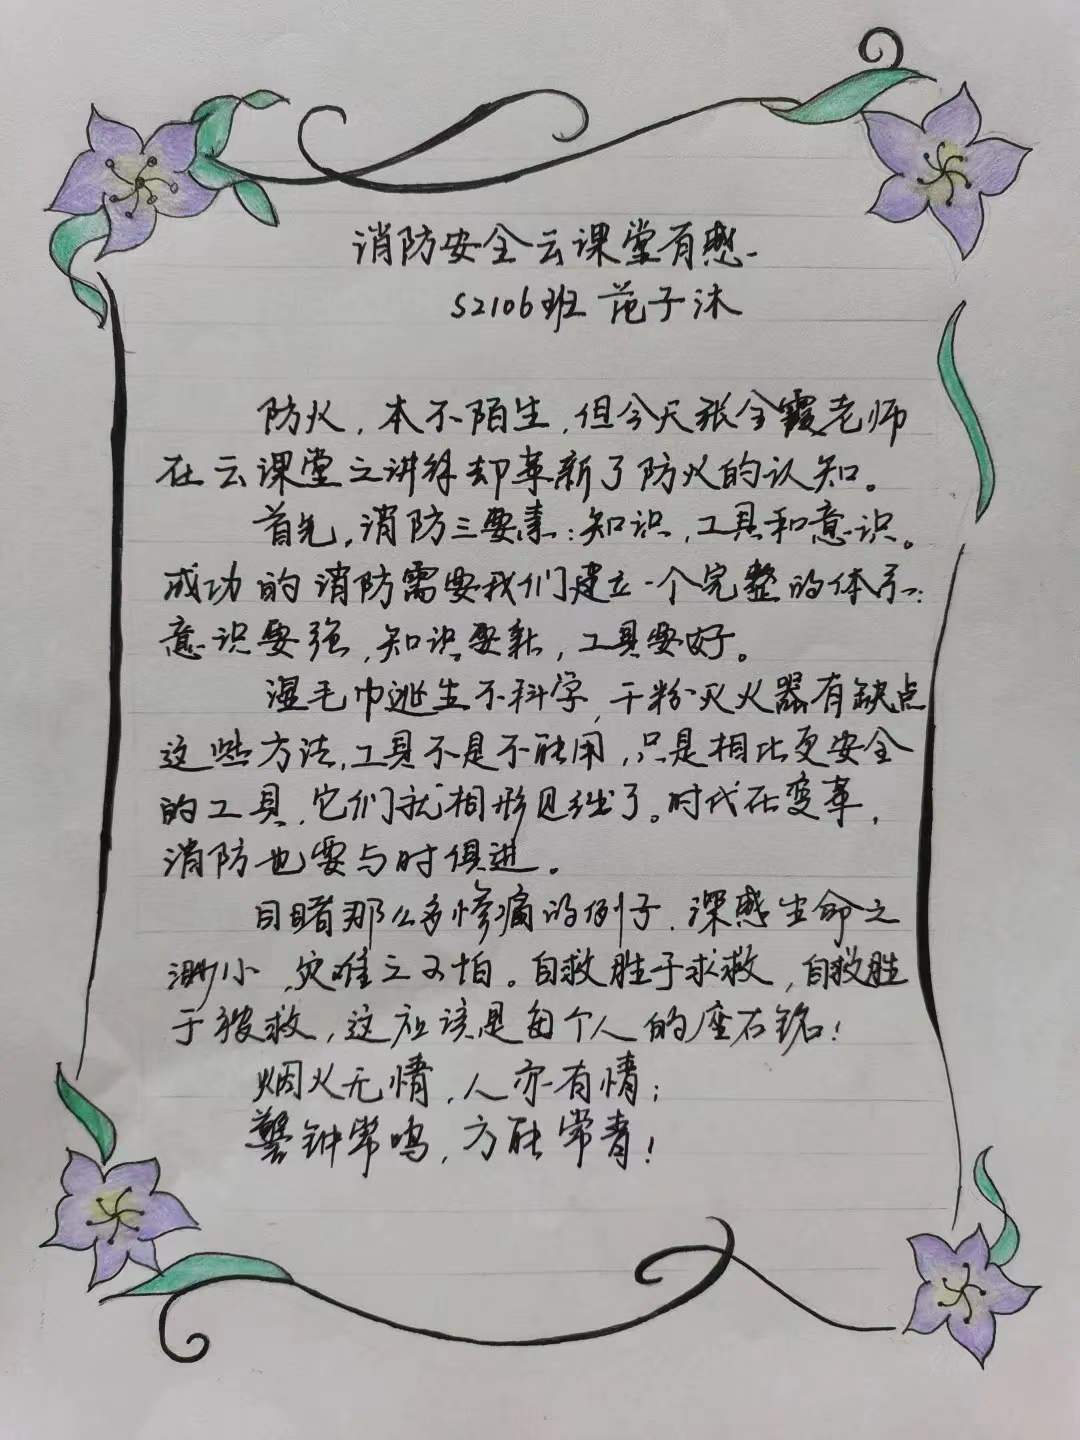 消防安全云课堂有感
S2106班 范子沐
防火，本不陌生，但今天张全霞老师
在云课堂之讲得却革新了防火的认知。
首先，消防三要素：知识，工具和意识。
成功的消防需要我们建立一个完整的体系：
意识要强，知识要新，工具要好。
湿毛巾逃生不科学，干粉灭火器有缺点
这些方法，工具不是不能用，只是相比更安全
的工具，它们就相形见绌了。时代在变革，
消防也要与时俱进。
目睹那么多惨痛的例子，深感生命之
渺小，灾难之可怕。自救胜于求救，自救胜
于被救，这应该是每个人的座右铭！
烟火无情，人亦有情；
警钟常鸣，方能常青！